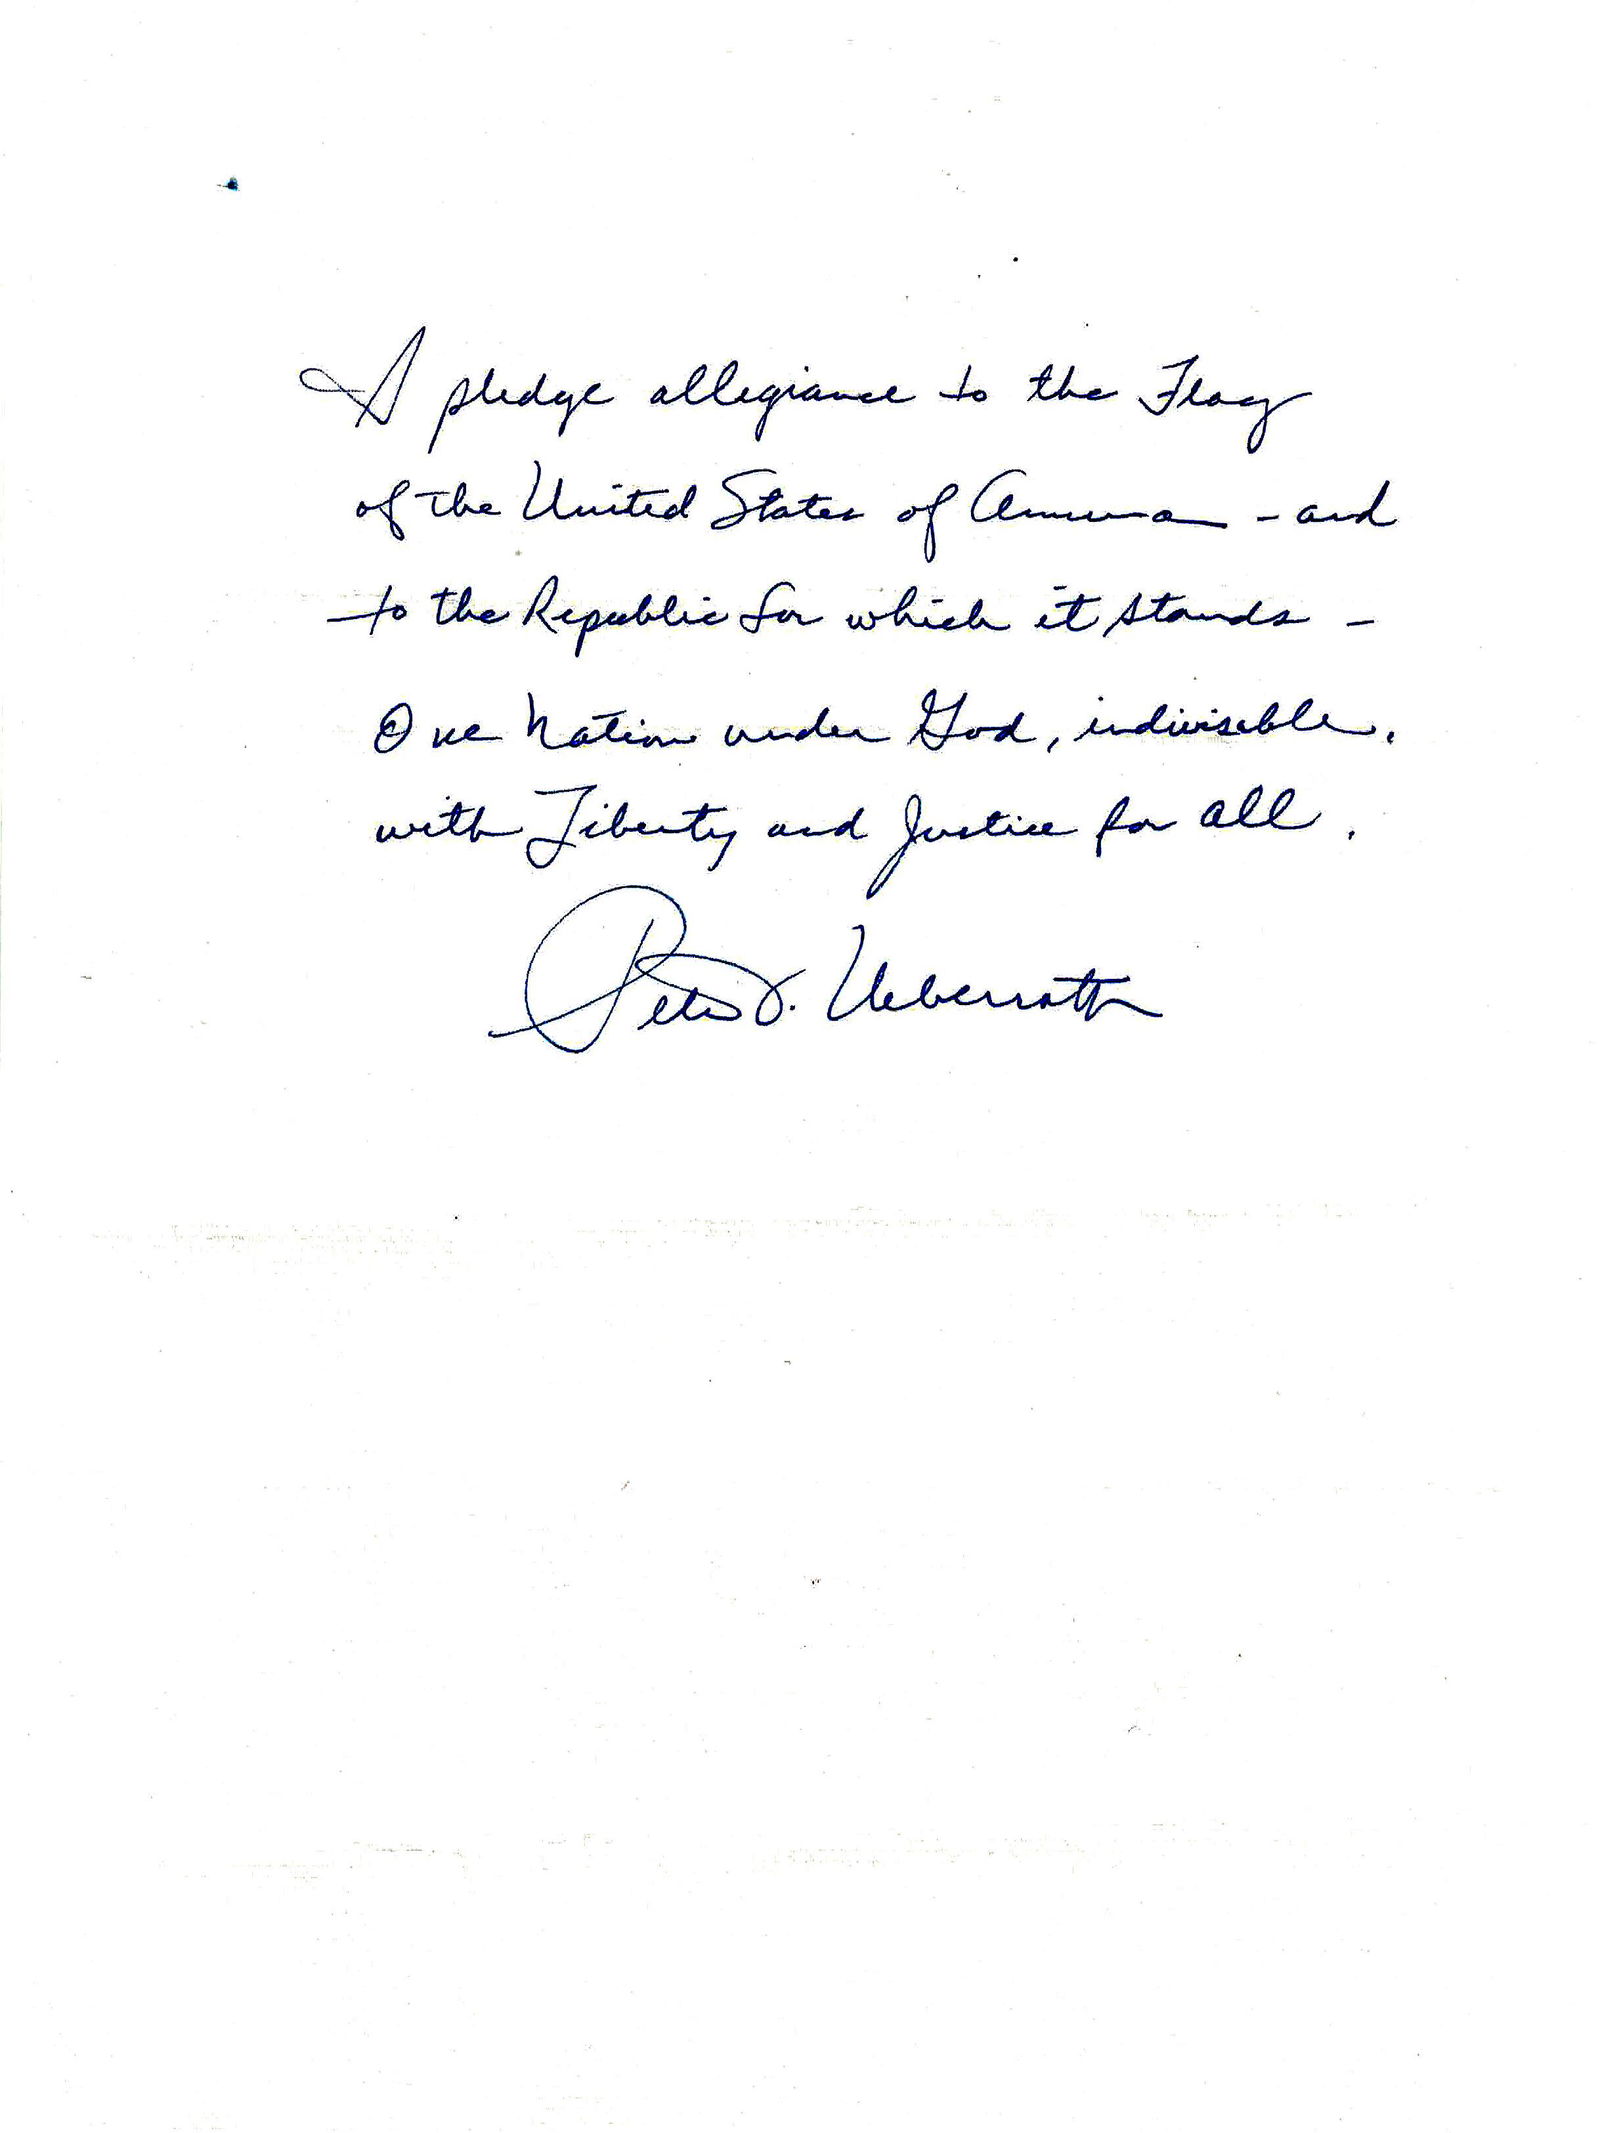 I pledge allegiance to the Flag
of the United States of America - and
to the Republic for which it stands -
One Nation under God, indivisible,
with Liberty and Justice for all.
Peter V. Ueberroth